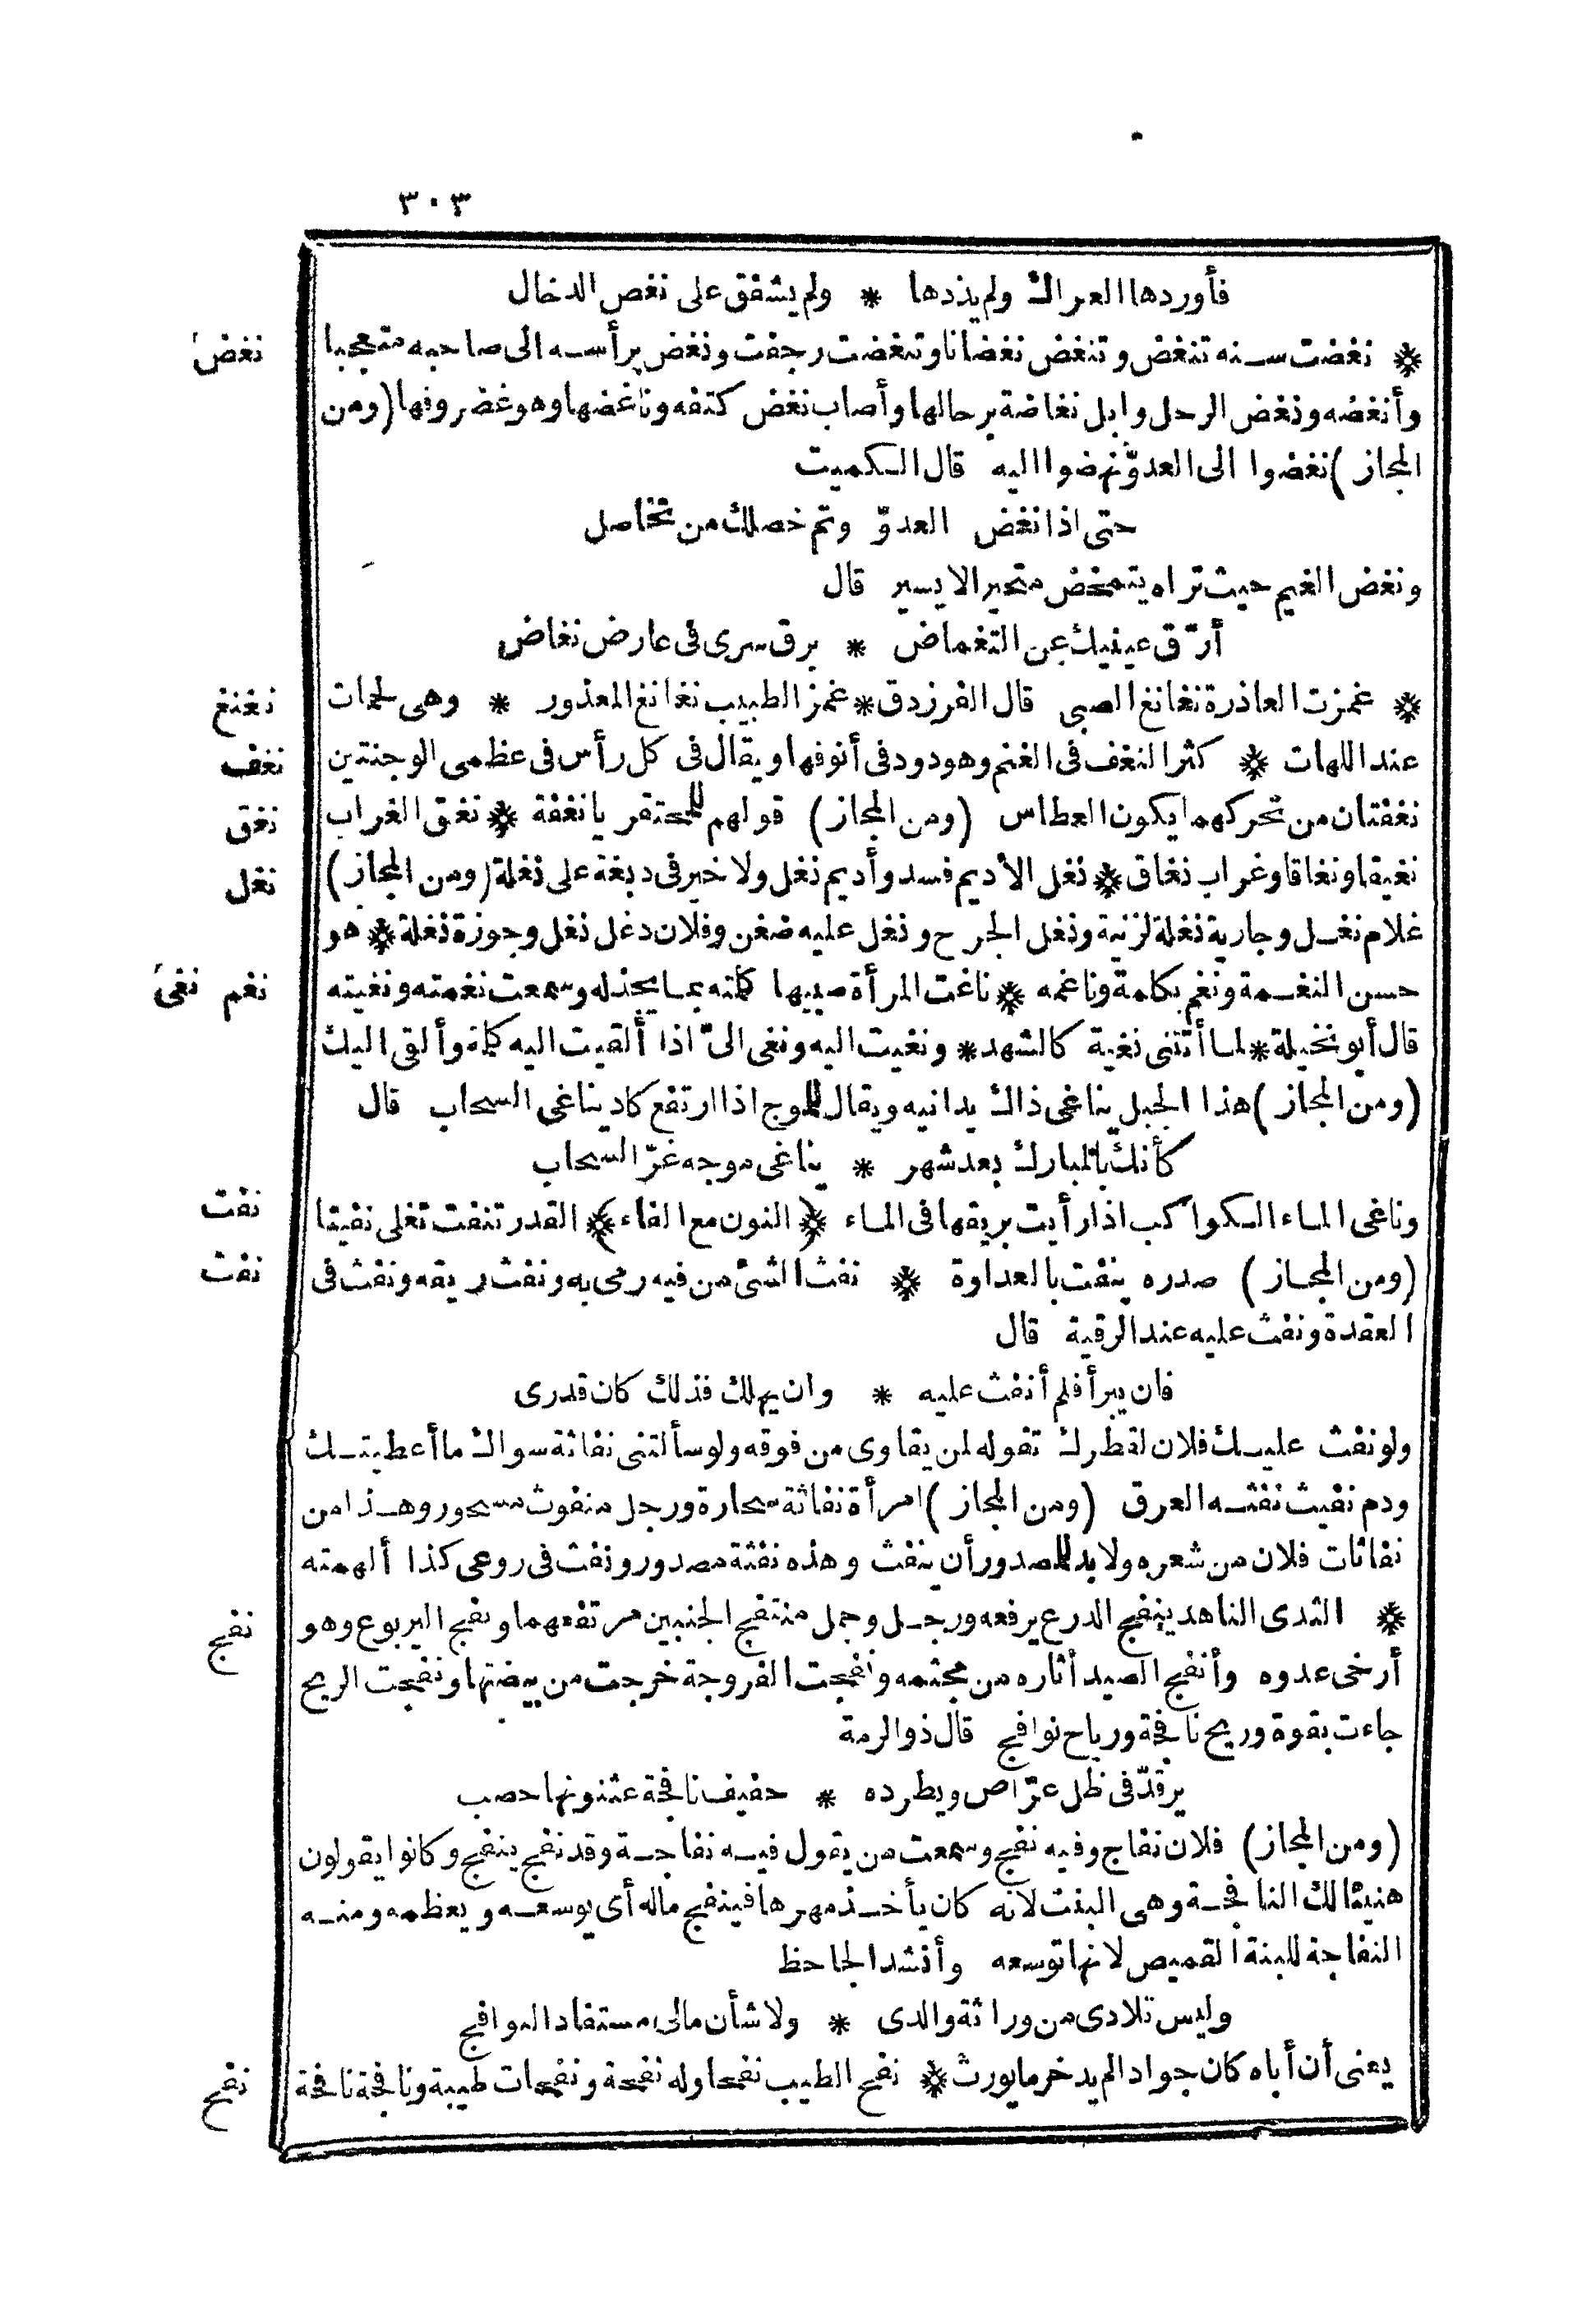 ٣٠٣
فأوردها العراك ولم يذدها * ولم يشفق على نغص الدخال
نغض
* نغضت سنه تنغض وتنغض نغضانا وتنغضت رجفت ونغض برأسه الى صاحبه متعجبا
وأنغضه ونغض الرحل وابل نغاضة برحالها وأصاب نغض كتفه وناغضها وهو غضروفها (ومن
المجاز) نغضوا الى العدوّ نهضوا اليه قال الكميت
حتى اذا نغض العدوّ وتم خصلك من تخاصل
ونغض الغيم حيث تراه يتمخض متحير الا يسير قال
أرّق عينيك عن التغماض * برق سرى فى عارض نغاض
نغنغ
* غمزت العاذرة نغانغ الصبى قال الفرزدق * غمز الطبيب نغانغ المعذور * وهى لحمات
نغف
عند اللهات * كثر النغف فى الغنم وهو دود فى أنوفها ويقال فى كل رأس فى عظمى الوجنتين
نغق
نغفتان من تحركهما يكون العطاس (ومن المجاز) قولهم للمحتقر يا نغفة * نغق الغراب
نغل
نغيقا ونغاقا وغراب نغاق * نغل الأديم فسد وأديم نغل ولا خير فى دبغة على نغلة (ومن المجاز)
غلام نغل وجارية نغلة لزنية ونغل الجرح ونغل عليه ضغن وفلان دغل نغل وجوزة نغلة * هو
نغم نغى
حسن النغمة ونغم بكلمة وناغمه * ناغت المرأة صبيها كلمته بما يجذله وسمعت نغمته ونغيته
قال أبو نخيلة * لما أتتنى نغية كالشهد * ونغيت اليه ونغى الىّ اذا ألقيت اليه كلمة وألقى اليك
(ومن المجاز) هذا الجبل يناغى ذاك يدانيه ويقال للموج اذا ارتفع كاد يناغى السحاب قال
كأنك بالمبارك بعد شهر * يناغى موجه غرّ السحاب
نفت
وناغى الماء الكواكب اذا رأيت بريقها فى الماء ﴿النون مع الفاء﴾ القدر تنفت تغلى نفيتا
نفث
(ومن المجاز) صدره ينفت بالعداوة * نفث الشئ من فيه رمى به ونفث ريقه ونفث فى
العقدة ونفث عليه عند الرقية قال
فان يبرأ فلم أنفث عليه * وان يهلك فذلك كان قدرى
ولو نفث عليك فلان لقطرك تقوله لمن يقاوى من فوقه ولو سألتنى نفاثة سواك ما أعطيتك
ودم نفيث نفثه العرق (ومن المجاز) امرأة نفاثة سحارة ورجل منفوث مسحور وهذا من
نفاثات فلان من شعره ولا بد للمصدور أن ينفث وهذه نفثة مصدور ونفث فى روعى كذا ألهمته
نفج
* الثدى الناهد ينفج الدرع يرفعه ورجل وجمل منتفج الجنبين مرتفعهما ونفج اليربوع وهو
أرخى عدوه وأنفج الصيد أثاره من مجثمه ونفجت الفروجة خرجت من بيضتها ونفجت الريح
جاءت بقوة وريح نافجة ورياح نوافج قال ذو الرمة
يرقدّ فى ظل عرّاص ويطرده * حفيف نافجة عثنونها حصب
(ومن المجاز) فلان نفاج وفيه نفج وسمعت من يقول فيه نفاجة وقد نفج ينفج وكانوا يقولون
هنيئا لك النافجة وهى البنت لانه كان يأخذ مهرها فينفج ماله أى يوسعه ويعظمه ومنه
النفاجة للبنة القميص لانها توسعه وأنشد الجاحظ
وليس تلادى من وراثة والدى * ولا شأن مالى مستفاد النوافج
نفح
يعنى أن أباه كان جوادا لم يدخر ما يورث * نفح الطيب نفحا وله نفحة ونفحات طيبة ونافحة نافحة